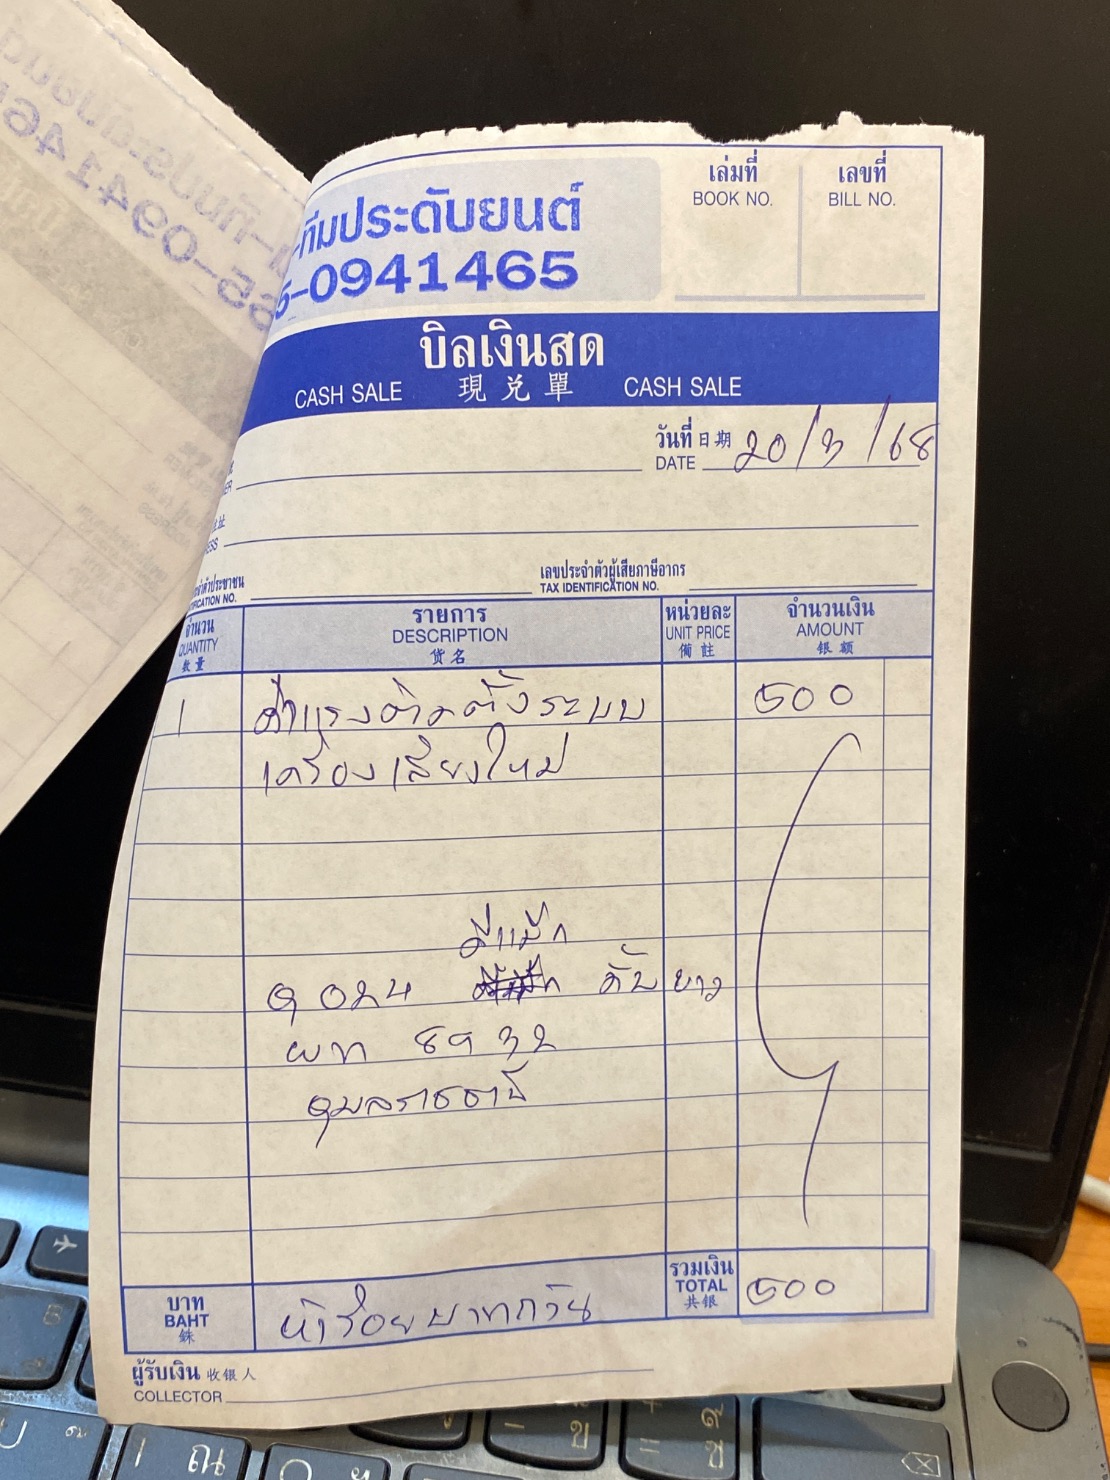 -ทีมประดับยนต์
5-0941465
เล่มที่
BOOK NO.
เลขที่
BILL NO.
บิลเงินสด
CASH SALE 現兌單 CASH SALE
วันที่ 日期 20/3/68
DATE
เลขประจำตัวผู้เสียภาษีอากร
TAX IDENTIFICATION NO.
จำนวน
QUANTITY
数量
รายการ
DESCRIPTION
货名
หน่วยละ
UNIT PRICE
備註
จำนวนเงิน
AMOUNT
银额
1 ค่าแรงติดตั้งระบบ 500
เครื่องเสียงใหม่
ดีแม็ก
คันยาว
ผท 8932
อุบลราชธานี
บาท
BAHT
銖
ห้าร้อยบาทถ้วน
รวมเงิน
TOTAL
共银
500
ผู้รับเงิน 收银人
COLLECTOR